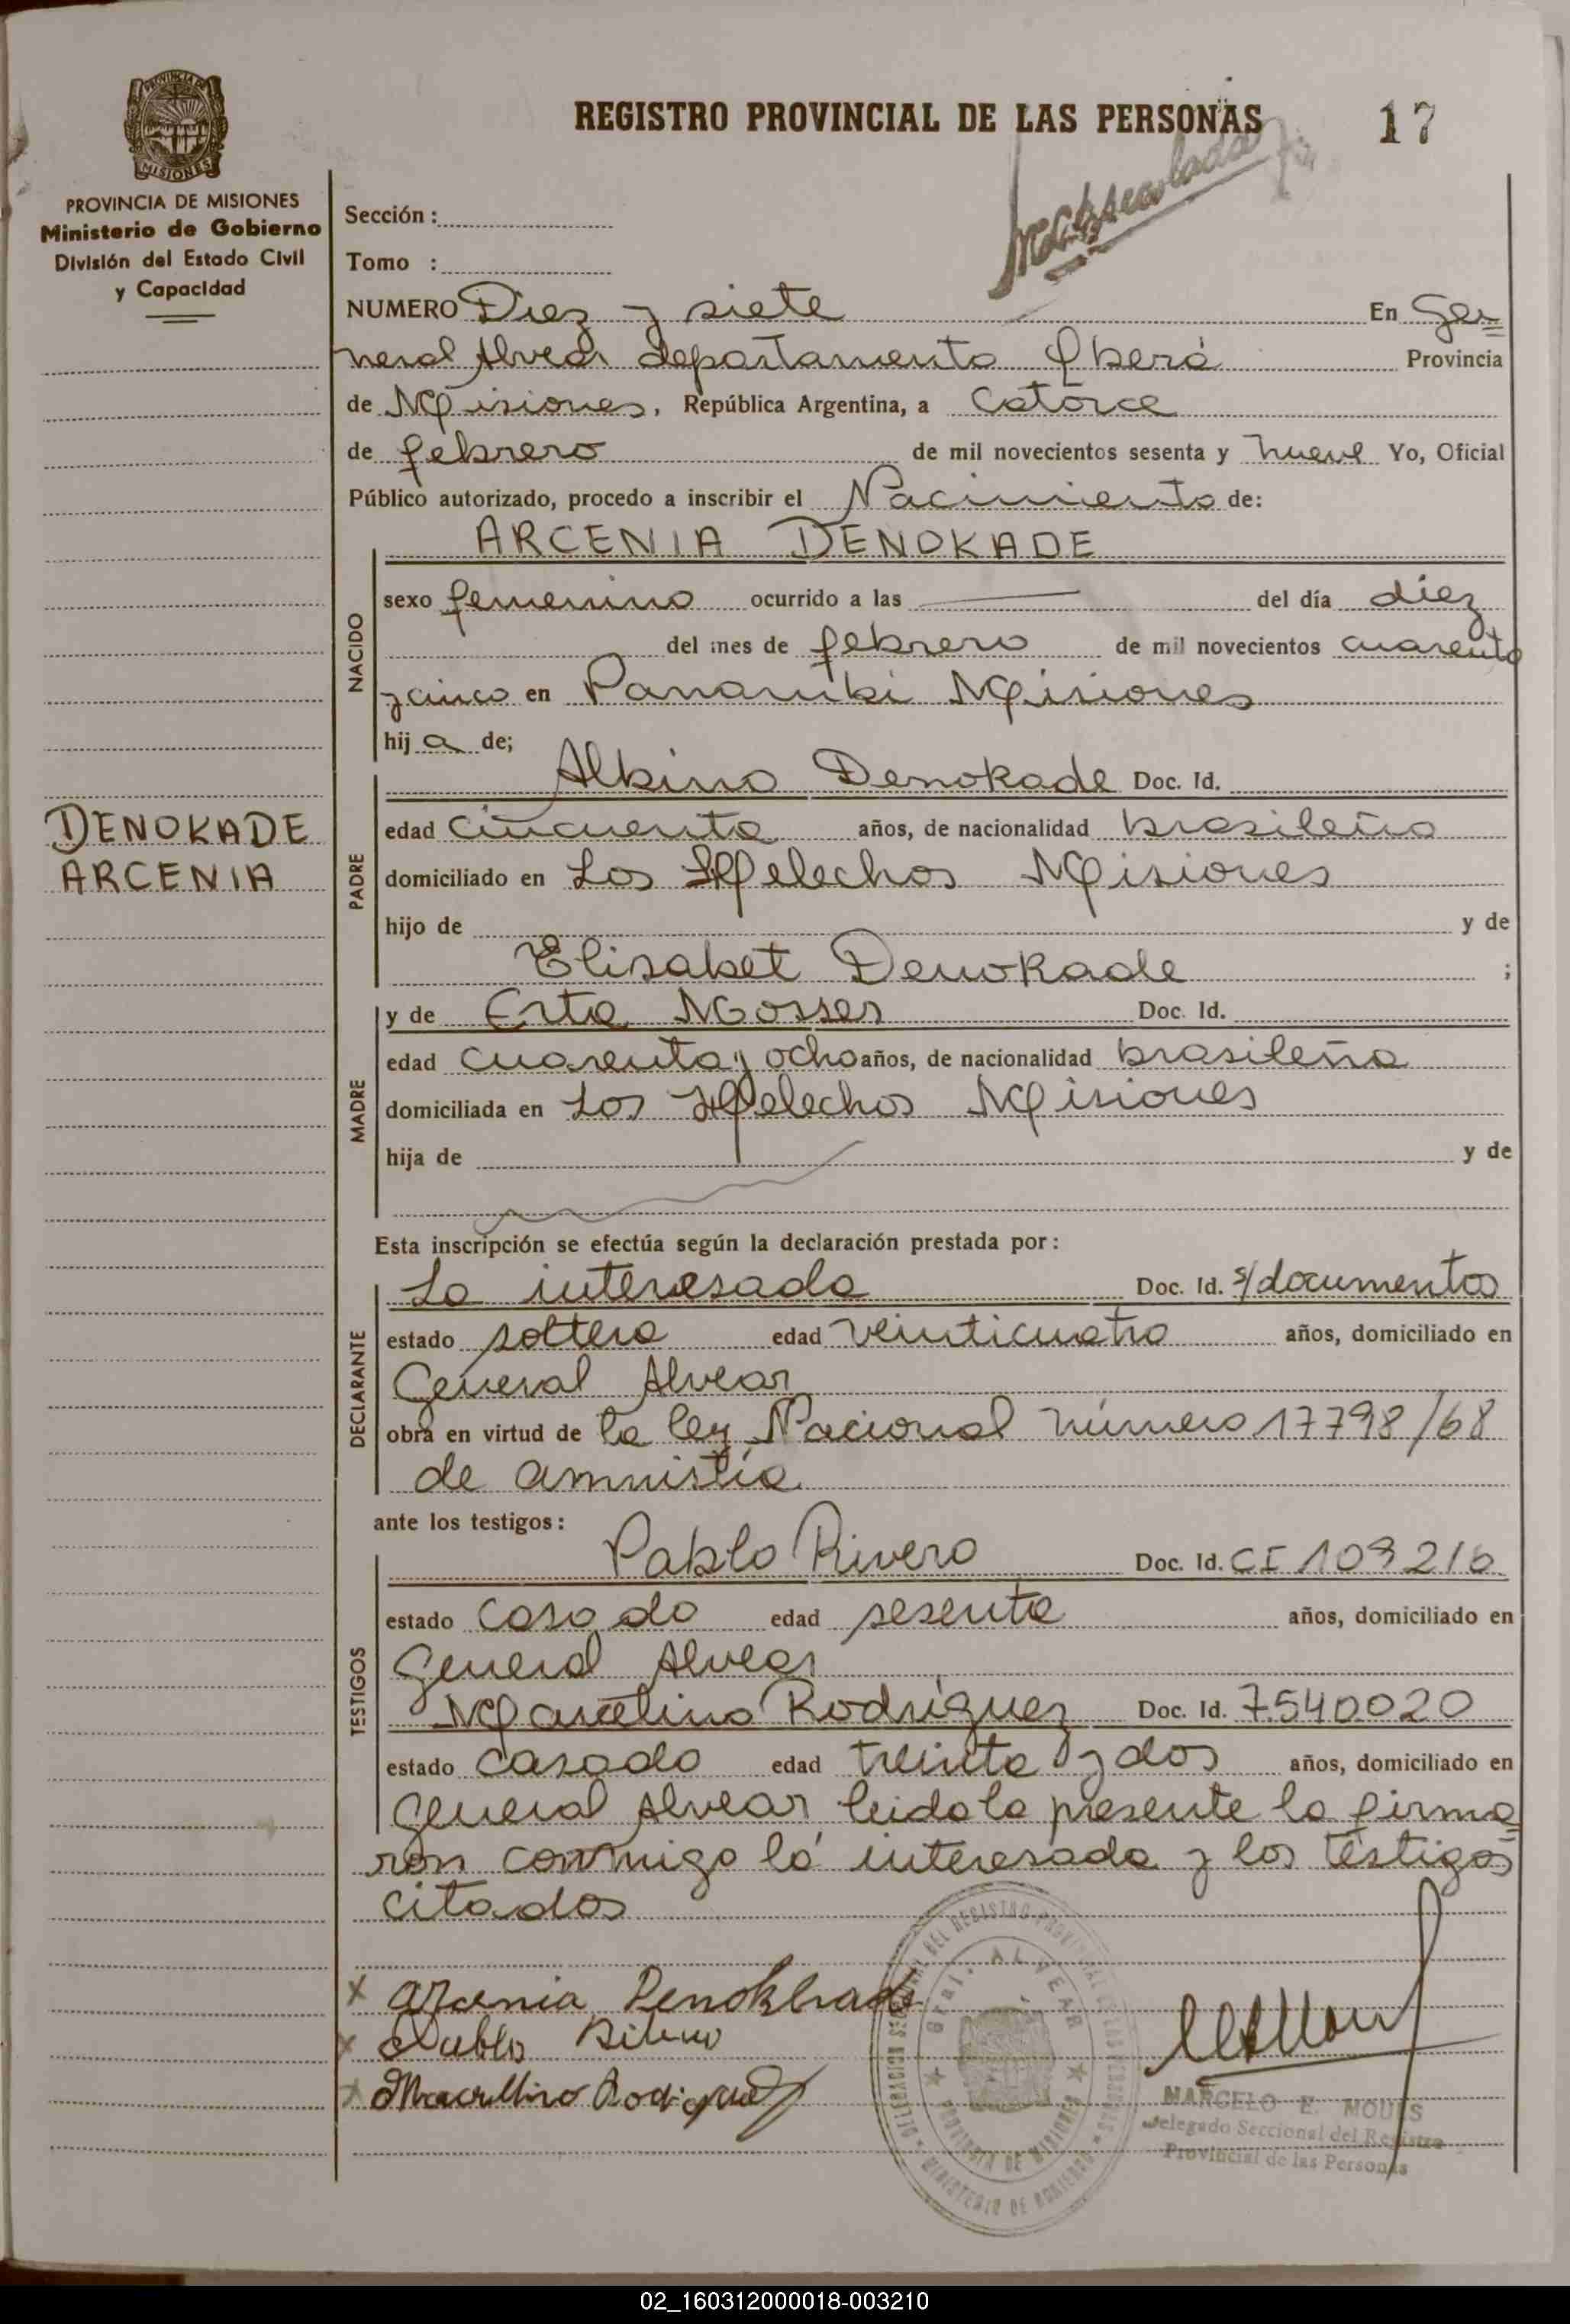 REGISTRO PROVINCIAL DE LAS PERSONAS
17
PROVINCIA DE MISIONES
Ministerio de Gobierno
División del Estado Civil
y Capacidad
Sección :
Tomo :
NUMERO Diez y siete En Ge=
neral Alvear departamento Oberá Provincia
de Misiones, República Argentina, a catorce
de febrero de mil novecientos sesenta y nueve Yo, Oficial
Público autorizado, procedo a inscribir el Nacimiento de:
ARCENIA DENOKADE
NACIDO
sexo femenino ocurrido a las del día diez
del mes de febrero de mil novecientos cuarenta
y cinco en Panambi Misiones
hij a de;
DENOKADE
ARCENIA
PADRE
Albino Denokade Doc. Id.
edad cincuenta años, de nacionalidad brasileño
domiciliado en Los Helechos Misiones
hijo de y de
Elisabet Denokade ;
MADRE
y de Erta Mosser Doc. Id.
edad cuarenta y ocho años, de nacionalidad brasileña
domiciliada en Los Helechos Misiones
hija de y de
Esta inscripción se efectúa según la declaración prestada por:
DECLARANTE
La interesada Doc. Id. s/documentos
estado soltera edad veinticuatro años, domiciliado en
General Alvear
obra en virtud de la ley Nacional número 17798/68
de amnistía
ante los testigos:
TESTIGOS
Pablo Rivero Doc. Id. CI 109216
estado casado edad sesenta años, domiciliado en
General Alvear
Marcelino Rodríguez Doc. Id. 7.540.020
estado casado edad treinta y dos años, domiciliado en
General Alvear leida la presente la firma=
ron conmigo la interesada y los testigos
citados
x Arcenia Denokhade
x Pablo Rivero
x Marcelino Rodriguez
Gral. ALVEAR
PROVINCIA DE MISIONES
MINISTERIO DE GOBIERNO
MARCELO E. MOUES
Delegado Seccional del Registro
Provincial de las Personas
02_160312000018-003210